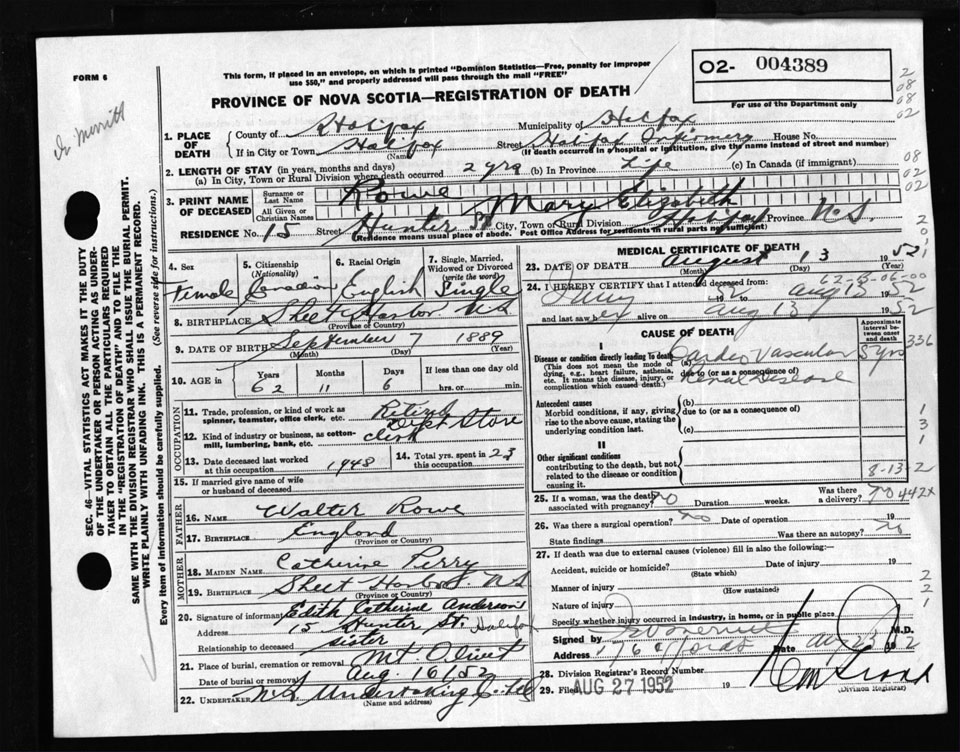 FORM 6
This form, if placed in an envelope, on which is printed "Dominion Statistics—Free, penalty for improper
use $50," and properly addressed will pass through the mail "FREE"
PROVINCE OF NOVA SCOTIA—REGISTRATION OF DEATH
O2- 004389
For use of the Department only
Dr Merritt
1. PLACE OF DEATH
County of Halifax Municipality of Halifax
If in City or Town Halifax Street Halifax Infirmary House No.
(Name) (If death occurred in a hospital or institution, give the name instead of street and number)
2. LENGTH OF STAY (in years, months and days)
(a) In City, Town or Rural Division where death occurred 2 yrs (b) In Province Life (c) In Canada (if immigrant)
3. PRINT NAME OF DECEASED
Surname or Last Name Rowe
All Given or Christian Names Mary Elizabeth
RESIDENCE No. 15 Street Hunter St City, Town or Rural Division Halifax Province N.S.
(Residence means usual place of abode. Post Office Address for residents in rural parts not sufficient)
4. Sex Female
5. Citizenship (Nationality) Canadian
6. Racial Origin English
7. Single, Married, Widowed or Divorced (write the word) Single
8. BIRTHPLACE Sheet Harbor NS
(Province or Country)
9. DATE OF BIRTH September 7 1889
(Month) (Day) (Year)
10. AGE in Years 62 Months 11 Days 6 If less than one day old hrs. or min.
OCCUPATION
11. Trade, profession, or kind of work as spinner, teamster, office clerk, etc. Retired
12. Kind of industry or business, as cotton-mill, lumbering, bank, etc. Dept Store clerk
13. Date deceased last worked at this occupation 1948
14. Total yrs. spent in this occupation 23
15. If married give name of wife or husband of deceased
FATHER
16. NAME Walter Rowe
17. BIRTHPLACE England
(Province or Country)
MOTHER
18. MAIDEN NAME Catherine Perry
19. BIRTHPLACE Sheet Harbor NS
(Province or Country)
20. Signature of informant Edith Catherine Anderson
Address 15 Hunter St. Halifax
Relationship to deceased sister
21. Place of burial, cremation or removal Mt Olivet
Date of burial or removal Aug. 16/52
22. UNDERTAKER N.S. Undertaking Co. Ltd
(Name and address)
MEDICAL CERTIFICATE OF DEATH
23. DATE OF DEATH August 13 1952
(Month) (Day) (Year)
62-B-06-00
24. I HEREBY CERTIFY that I attended deceased from:
52 to Aug 13 1952
and last saw her alive on Aug 13 1952
CAUSE OF DEATH
Approximate interval between onset and death
I
Disease or condition directly leading to death
(This does not mean the mode of dying, e.g., heart failure, asthenia, etc. It means the disease, injury, or complication which caused death.)
(a) Cardio Vascular 5 yrs
due to (or as a consequence of)
Renal Disease
336
Antecedent causes
Morbid conditions, if any, giving rise to the above cause, stating the underlying condition last.
(b)
due to (or as a consequence of)
(c)
II
Other significant conditions
contributing to the death, but not related to the disease or condition causing it.
8-13-2
25. If a woman, was the death associated with pregnancy? no Duration weeks. Was there a delivery? no
442x
26. Was there a surgical operation? no Date of operation 19
State findings Was there an autopsy? no
27. If death was due to external causes (violence) fill in also the following:—
Accident, suicide or homicide? Date of injury 19
(State which)
Manner of injury
(How sustained)
Nature of injury
Specify whether injury occurred in industry, in home, or in public place
Signed by Merritt M.D.
Address 176 Date Aug 23 1952
28. Division Registrar's Record Number
29. Filed AUG 27 1952 19
(Division Registrar)
SEC. 46—VITAL STATISTICS ACT MAKES IT THE DUTY
OF THE UNDERTAKER OR PERSON ACTING AS UNDERTAKER
TO OBTAIN ALL THE PARTICULARS REQUIRED
IN THE "REGISTRATION OF DEATH" AND TO FILE THE
SAME WITH THE DIVISION REGISTRAR WHO SHALL ISSUE THE BURIAL PERMIT.
WRITE PLAINLY WITH UNFADING INK. THIS IS A PERMANENT RECORD.
Every item of information should be carefully supplied. (See reverse side for instructions.)
2
08
08
02
08
02
02
2
0
2
1
1
3
1
2
2
1